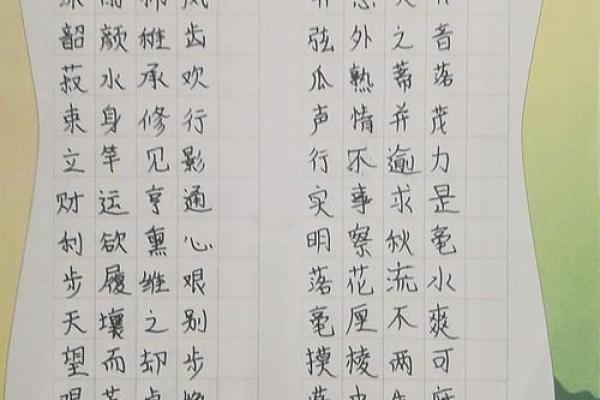 韶颜稚齿
菽水承欢
束身修行
立竿见影
财运亨通
利欲熏心
步履维艰
天壤之别
望而却步
弦外之音
瓜熟蒂落
声情并茂
行不逾力
实事求是
明察秋毫
落花流水
毫厘不爽
摸棱两可